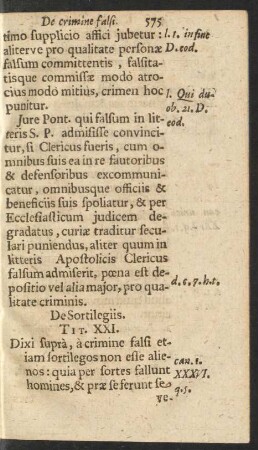 De crimine falsi. 575
timo supplicio affici jubetur : l. 1. in fine
aliterve pro qualitate personæ D. eod.
falsum committentis , falsita-
tisque commissæ modò atro-
cius modò mitius, crimen hoc
punitur. l. Qui du-
ob. 21. D.
Jure Pont. qui falsum in lit-
teris S. P. admisisse convinci- eod.
tur, si Clericus fueris, cum o-
mnibus suis ea in re fautoribus
& defensoribus excommuni-
catur , omnibusque officiis &
beneficiis suis spoliatur, & per
Ecclesiasticum judicem de-
gradatus , curiæ traditur secu-
lari puniendus, aliter quum in
litteris Apostolicis Clericus
falsum admiserit, pœna est de- d. c. 7. h. t.
positio vel alia major, pro qua-
litate criminis.
De Sortilegiis.
TIT. XXI.
Dixi suprà, à crimine falsi et-
iam sortilegos non esse alie- can. 1.
nos : quia per sortes fallunt XXXVI.
homines, & præ se ferunt se q. 5.
vc-